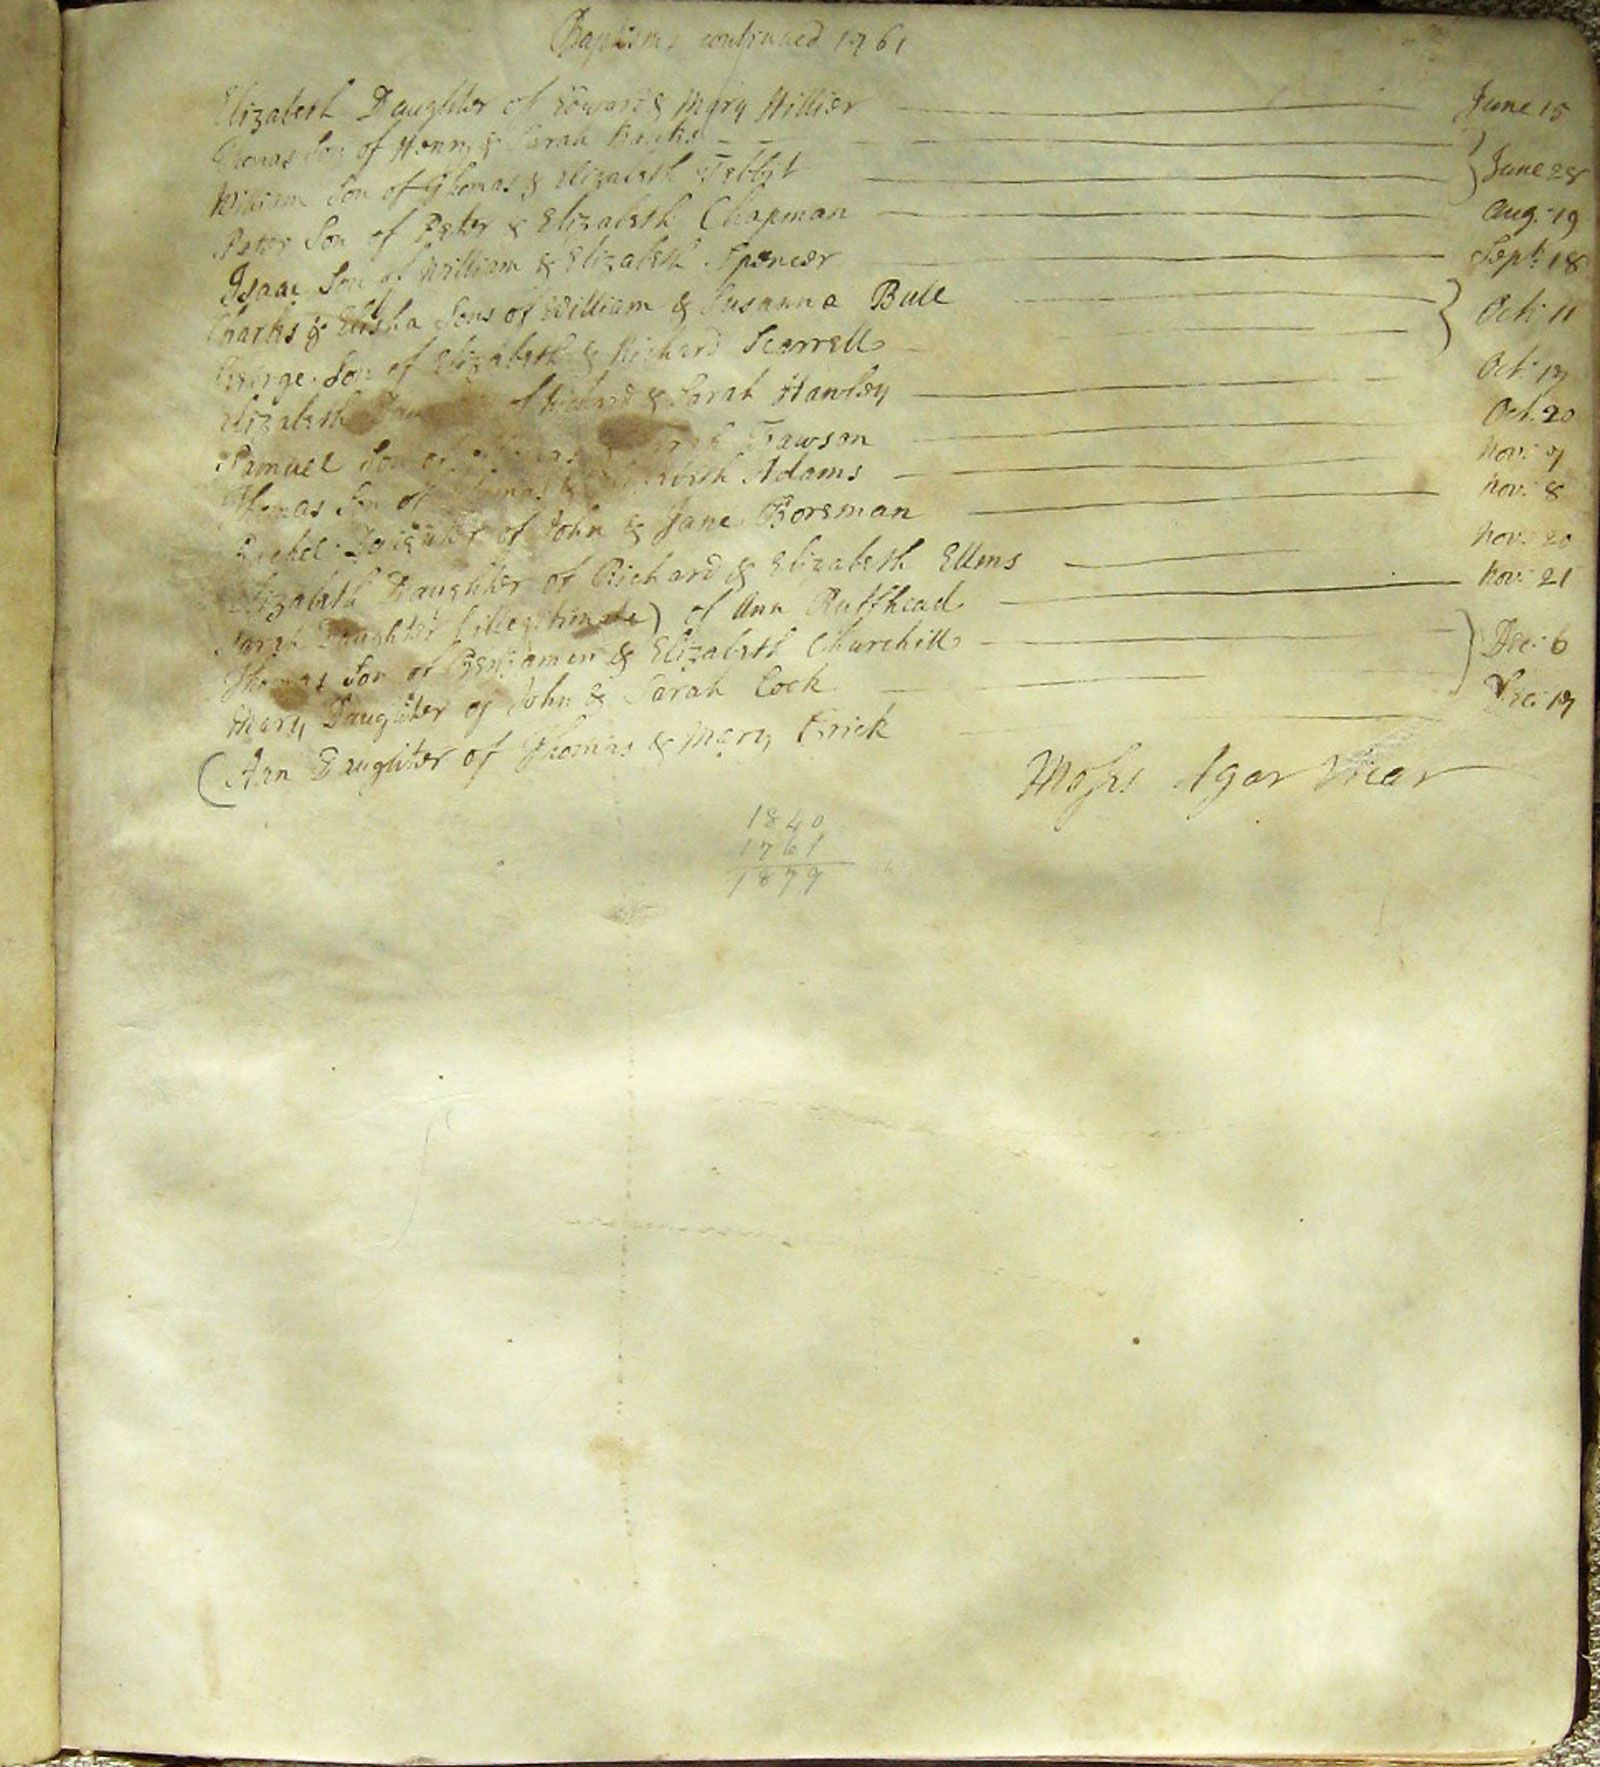 Baptisms continued 1761
Elizabeth Daughter of Edward & Mary Hillier June 15
Thomas Son of Henry & Sarah
William Son of Thomas & Elizabeth Tebbit June 28
Peter Son of Peter & Elizabeth Chapman Aug: 19
Isaac Son of William & Elizabeth Spencer Sept: 18
Charles & Elisha Sons of William & Susanna Bull Oct: 11
George Son of Elizabeth & Richard Scorrell
Elizabeth of Richard & Sarah Hawley Oct: 17
Samuel Son of Trawson Oct: 20
Thomas Son of Thomas & Elizabeth Adams Nov: 7
Daughter of John & Jane Boreman Nov: 8
Elizabeth Daughter of Richard & Elizabeth Ellems Nov: 20
Sarah Daughter (illegitimate) of Ann Ruffhead Nov: 21
Thomas Son of Benjamin & Elizabeth Churchill Dec: 6
Mary Daughter of John & Sarah Cock
(Ann Daughter of Thomas & Mary Brick Dec: 17
Moses Agar Vicar
1840
1761
1879